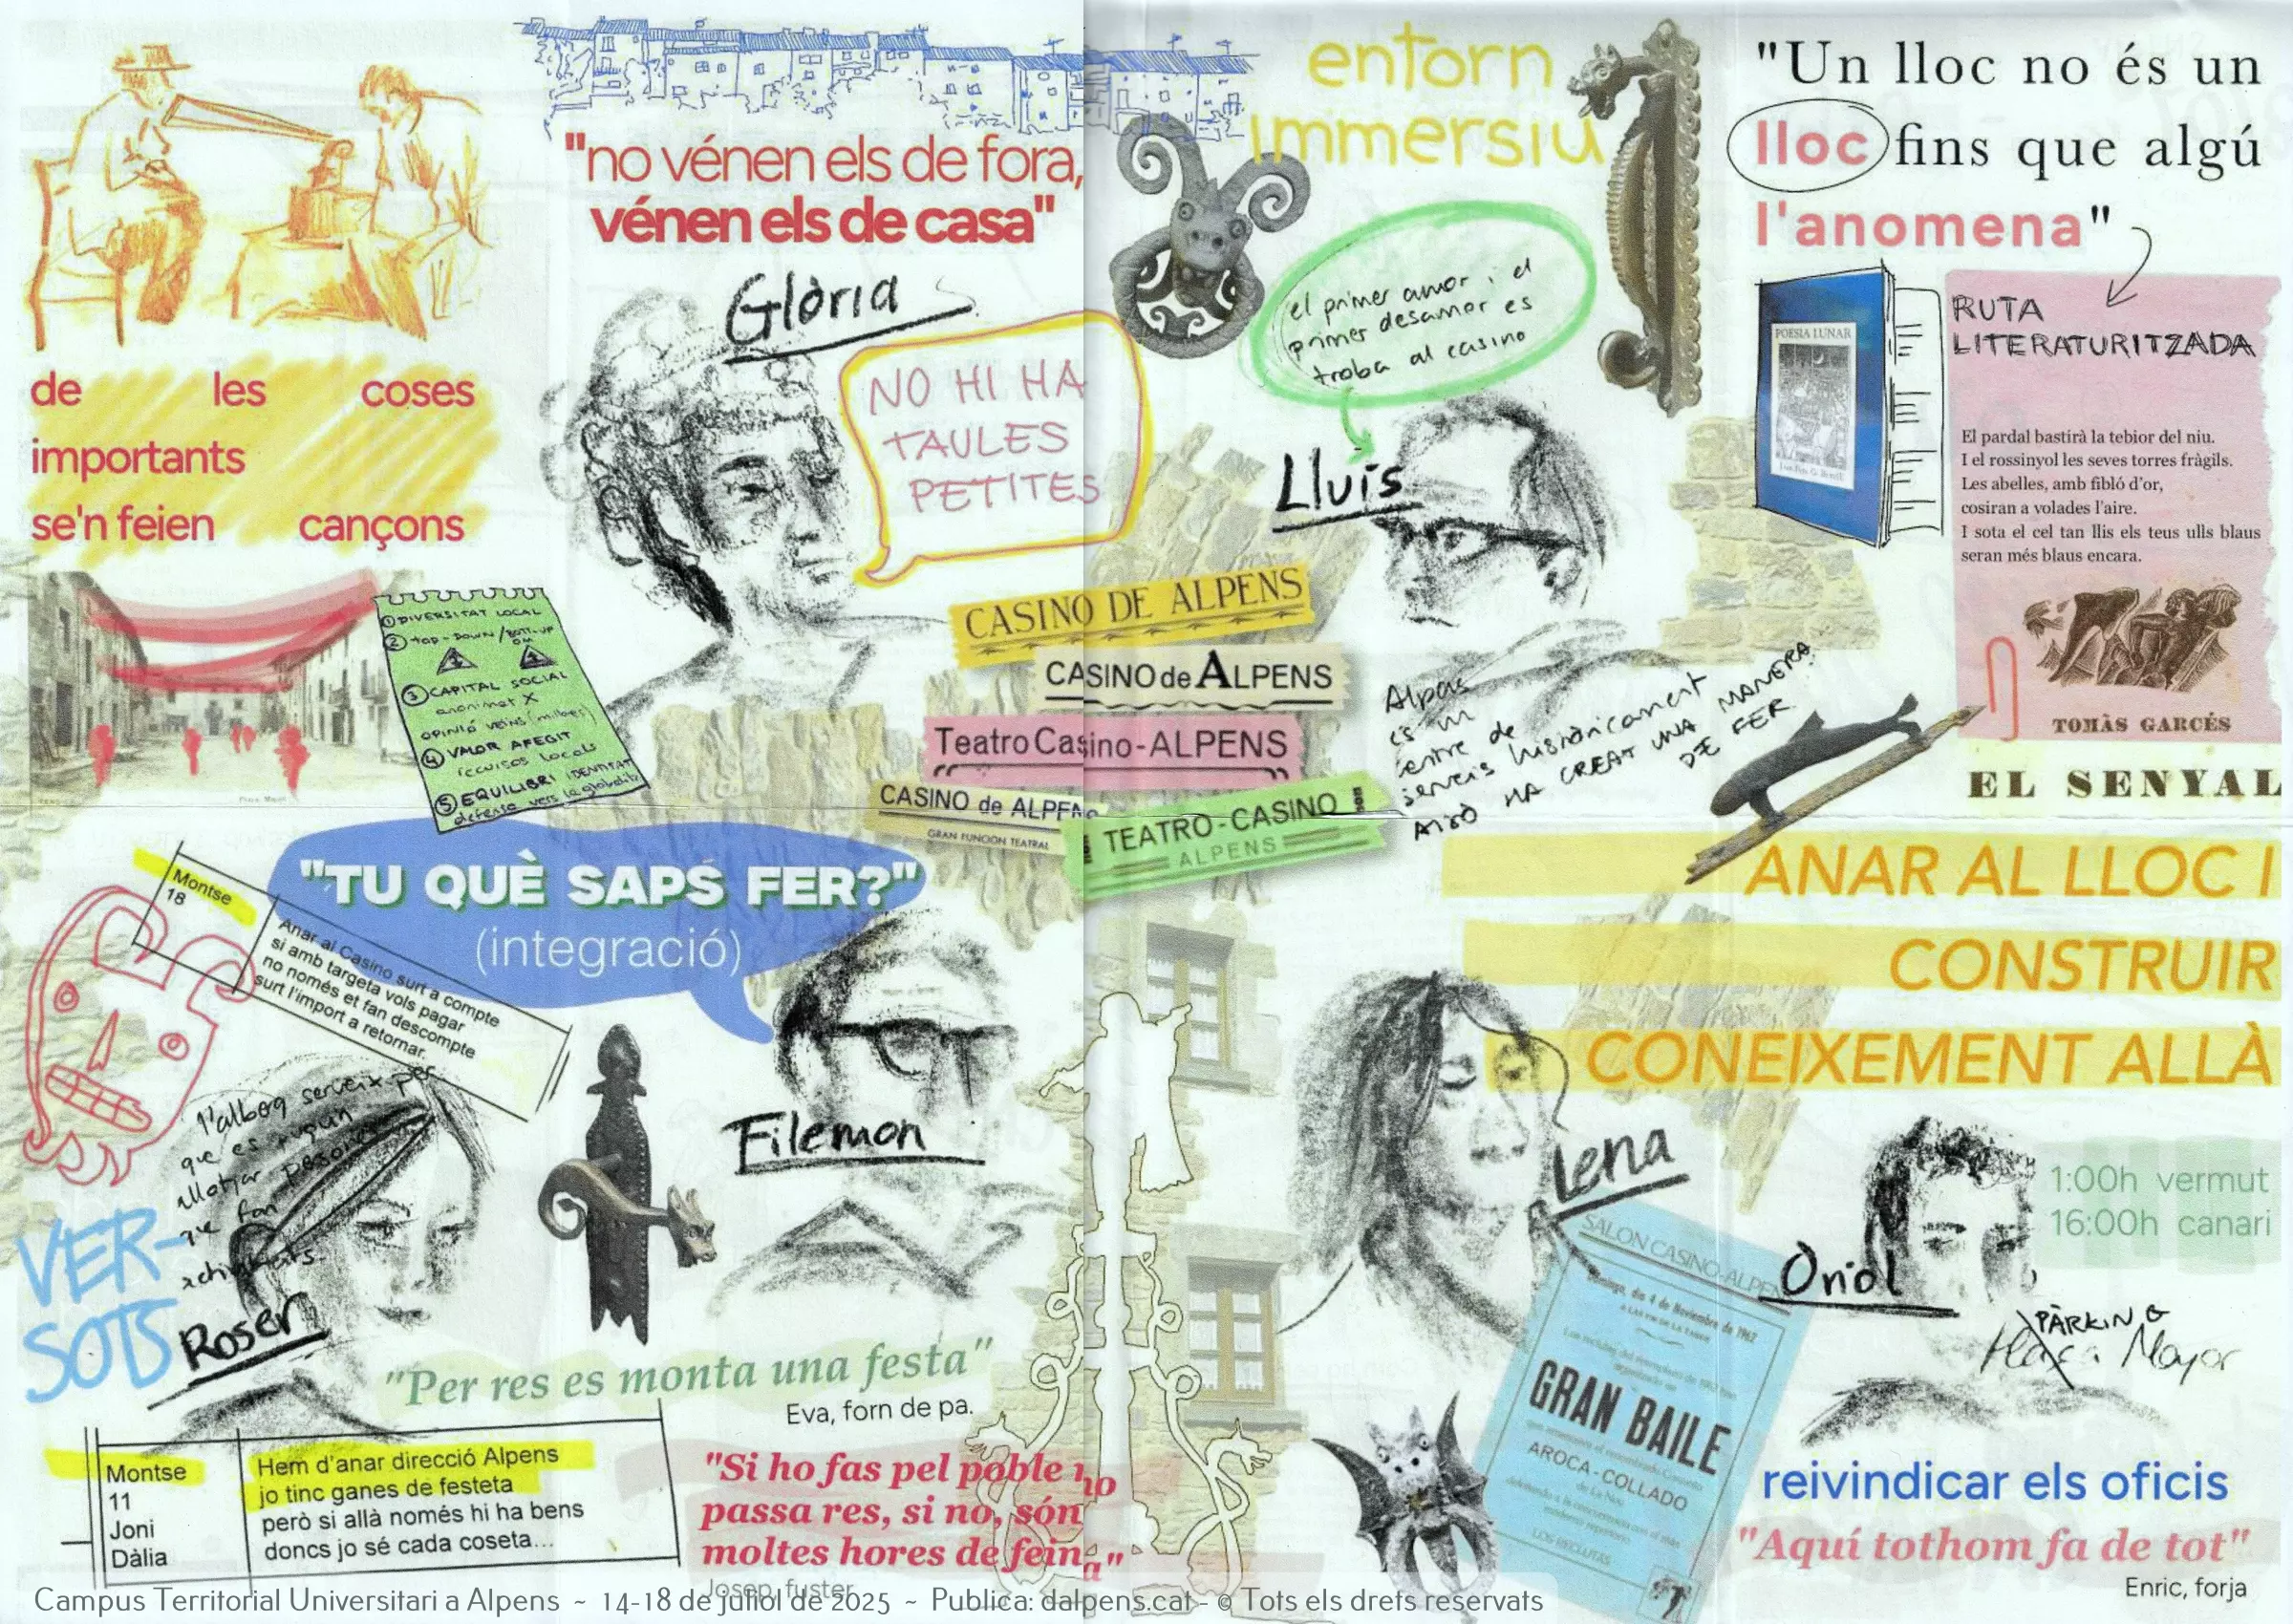 "no vénen els de fora,
vénen els de casa"
entorn
immersiu
"Un lloc no és un
lloc fins que algú
l'anomena"
Glòria
NO HI HA
TAULES
PETITES
el primer amor i el
primer desamor es
troba al casino
Lluís
POESIA LUNAR
RUTA
LITERATURITZADA
El pardal bastirà la tebior del niu.
I el rossinyol les seves torres fràgils.
Les abelles, amb fibló d'or,
cosiran a volades l'aire.
I sota el cel tan llis els teus ulls blaus
seran més blaus encara.
TOMÀS GARCÉS
EL SENYAL
de les coses
importants
se'n feien cançons
① DIVERSITAT LOCAL
② top-down / BOTTOM-UP
③ CAPITAL SOCIAL
anonimat X
opinió veïns (milers)
④ VALOR AFEGIT
recursos locals
⑤ EQUILIBRI IDENTITAT
defensa vers la globalitz
CASINO DE ALPENS
CASINO de ALPENS
Teatro Casino-ALPENS
CASINO de ALPENS
GRAN FUNCIÓN TEATRAL
TEATRO-CASINO
ALPENS
Alpens
és un
centre de
serveis històricament
AIXÒ HA CREAT UNA MANERA
DE FER
"TU QUÈ SAPS FER?"
(integració)
Montse
18
Anar al Casino surt a compte
si amb targeta vols pagar
no només et fan descompte
surt l'import a retornar.
l'alberg serveix per
que es puguin
allotjar persones
que fan
activitats.
Filemon
VER-
SOTS
Roser
ANAR AL LLOC I
CONSTRUIR
CONEIXEMENT ALLÀ
Lena
Oriol
1:00h vermut
16:00h canari
PÀRKING
Plaça Mayor
SALON CASINO-ALPENS
Domingo, dia 4 de Noviembre de 1962
GRAN BAILE
AROCA-COLLADO
LOS RECLUTAS
"Per res es monta una festa"
Eva, forn de pa.
Montse
11
Joni
Dàlia
Hem d'anar direcció Alpens
jo tinc ganes de festeta
però si allà només hi ha bens
doncs jo sé cada coseta...
"Si ho fas pel poble no
passa res, si no, són
moltes hores de feina"
Josep, fuster
reivindicar els oficis
"Aquí tothom fa de tot"
Enric, forja
Campus Territorial Universitari a Alpens ~ 14-18 de juliol de 2025 ~ Publica: dalpens.cat - © Tots els drets reservats